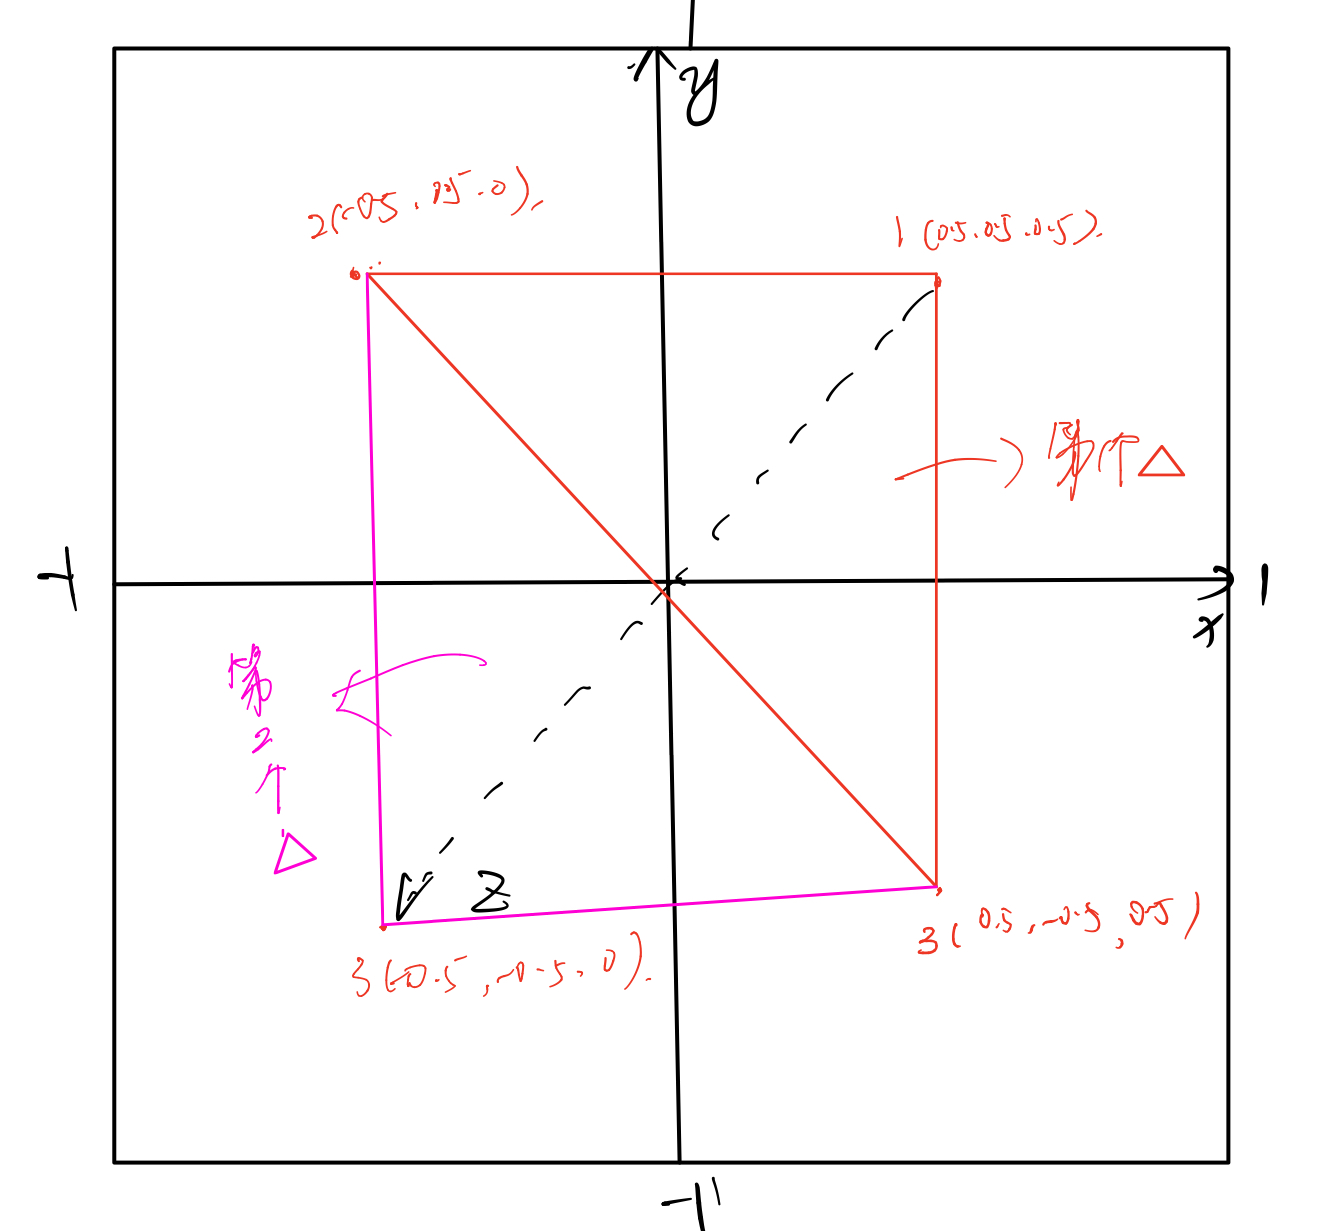 y
2(-0.5, 0.5, 0).
1 (0.5, 0.5, 0.5).
第1个△
-1
1
x
第
2
个
△
Z
3(-0.5, -0.5, 0).
3(0.5, -0.5, 0.5)
-1